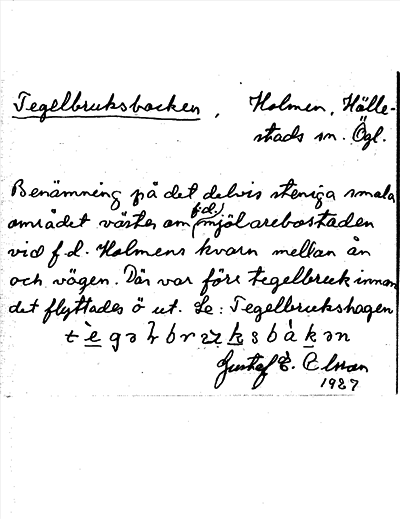 Tegelbruksbacken, Holmen, Hälle-
stads sn. Ögl.
Benämning på det delvis steniga smala
området väster om (f.d.) mjölarebostaden
vid f.d. Holmens kvarn mellan ån
och vägen. Där var förr tegelbruk innan
det flyttades ö ut. Se: Tegelbrukshagen
Gustaf E. Elman
1927